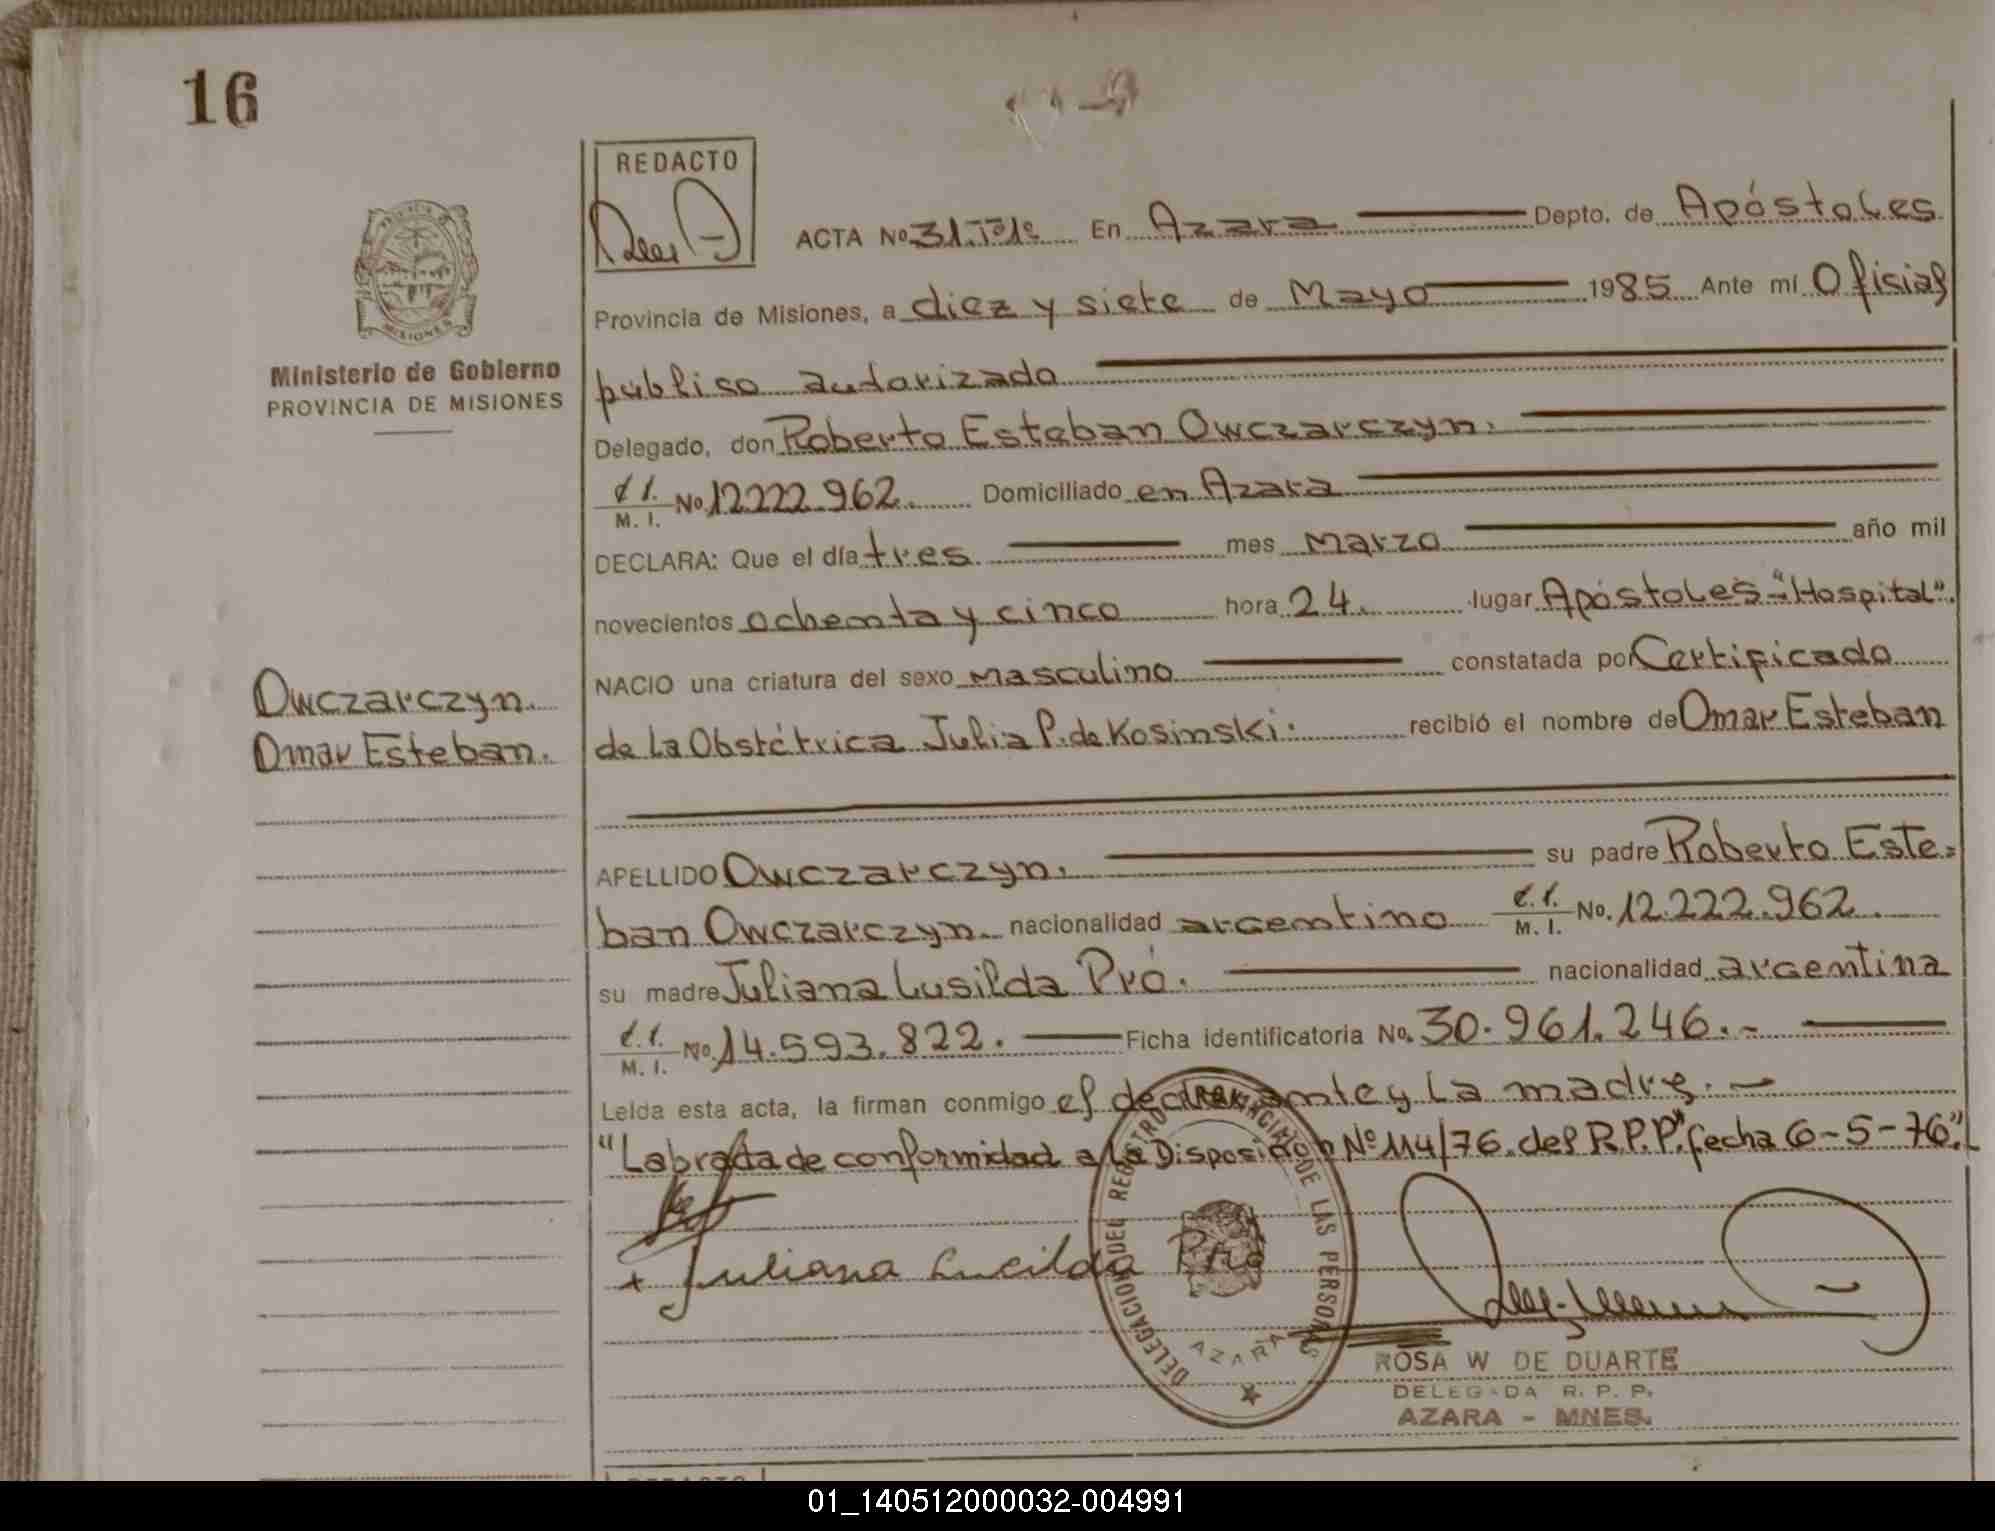 16
REDACTO
ACTA Nº 31.Tº1º En Azara Depto. de Apóstoles
Provincia de Misiones, a diez y siete de Mayo 1985 Ante mí Oficial
Ministerio de Gobierno
PROVINCIA DE MISIONES
público autorizado
Delegado, don Roberto Esteban Owczarczyn.
C.I. M. I. No. 12.222.962. Domiciliado en Azara
DECLARA: Que el día tres. mes Marzo año mil
novecientos ochenta y cinco hora 24. lugar Apóstoles-"Hospital".
NACIO una criatura del sexo masculino constatada por Certificado
Owczarczyn.
Omar Esteban.
de La Obstétrica Julia P. de Kosinski. recibió el nombre de Omar Esteban
APELLIDO Owczarczyn. su padre Roberto Este=
ban Owczarczyn. nacionalidad argentino C.I. M. I. No. 12.222.962.
su madre Juliana Lusilda Pró. nacionalidad argentina
C.I. M. I. No. 14.593.822. Ficha identificatoria No. 30.961.246.-
Leída esta acta, la firman conmigo el declarante y La madre.
"Labrada de conformidad a La Disposición Nº 114/76. del R.P.P." fecha 6-5-76".
Juliana Lucilda Pró
DELEGACION DEL REGISTRO PROVINCIAL DE LAS PERSONAS
AZARA
MISIONES
ROSA W DE DUARTE
DELEGADA R. P. P.
AZARA - MNES.
REDACTO
01_140512000032-004991